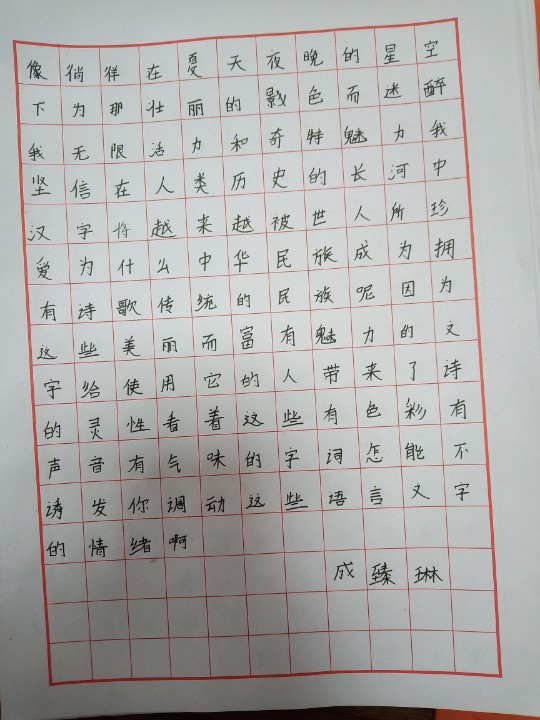 像徜徉在夏天夜晚的星空
下为那壮丽的影色而迷醉
我无限活力和奇特魅力我
坚信在人类历史的长河中
汉字将越来越被世人所珍
爱为什么中华民族成为拥
有诗歌传统的民族呢因为
这些美丽而富有魅力的文
字给使用它的人带来了诗
的灵性看着这些有色彩有
声音有气味的字词怎能不
诱发你调动这些语言文字
的情绪啊
成臻琳